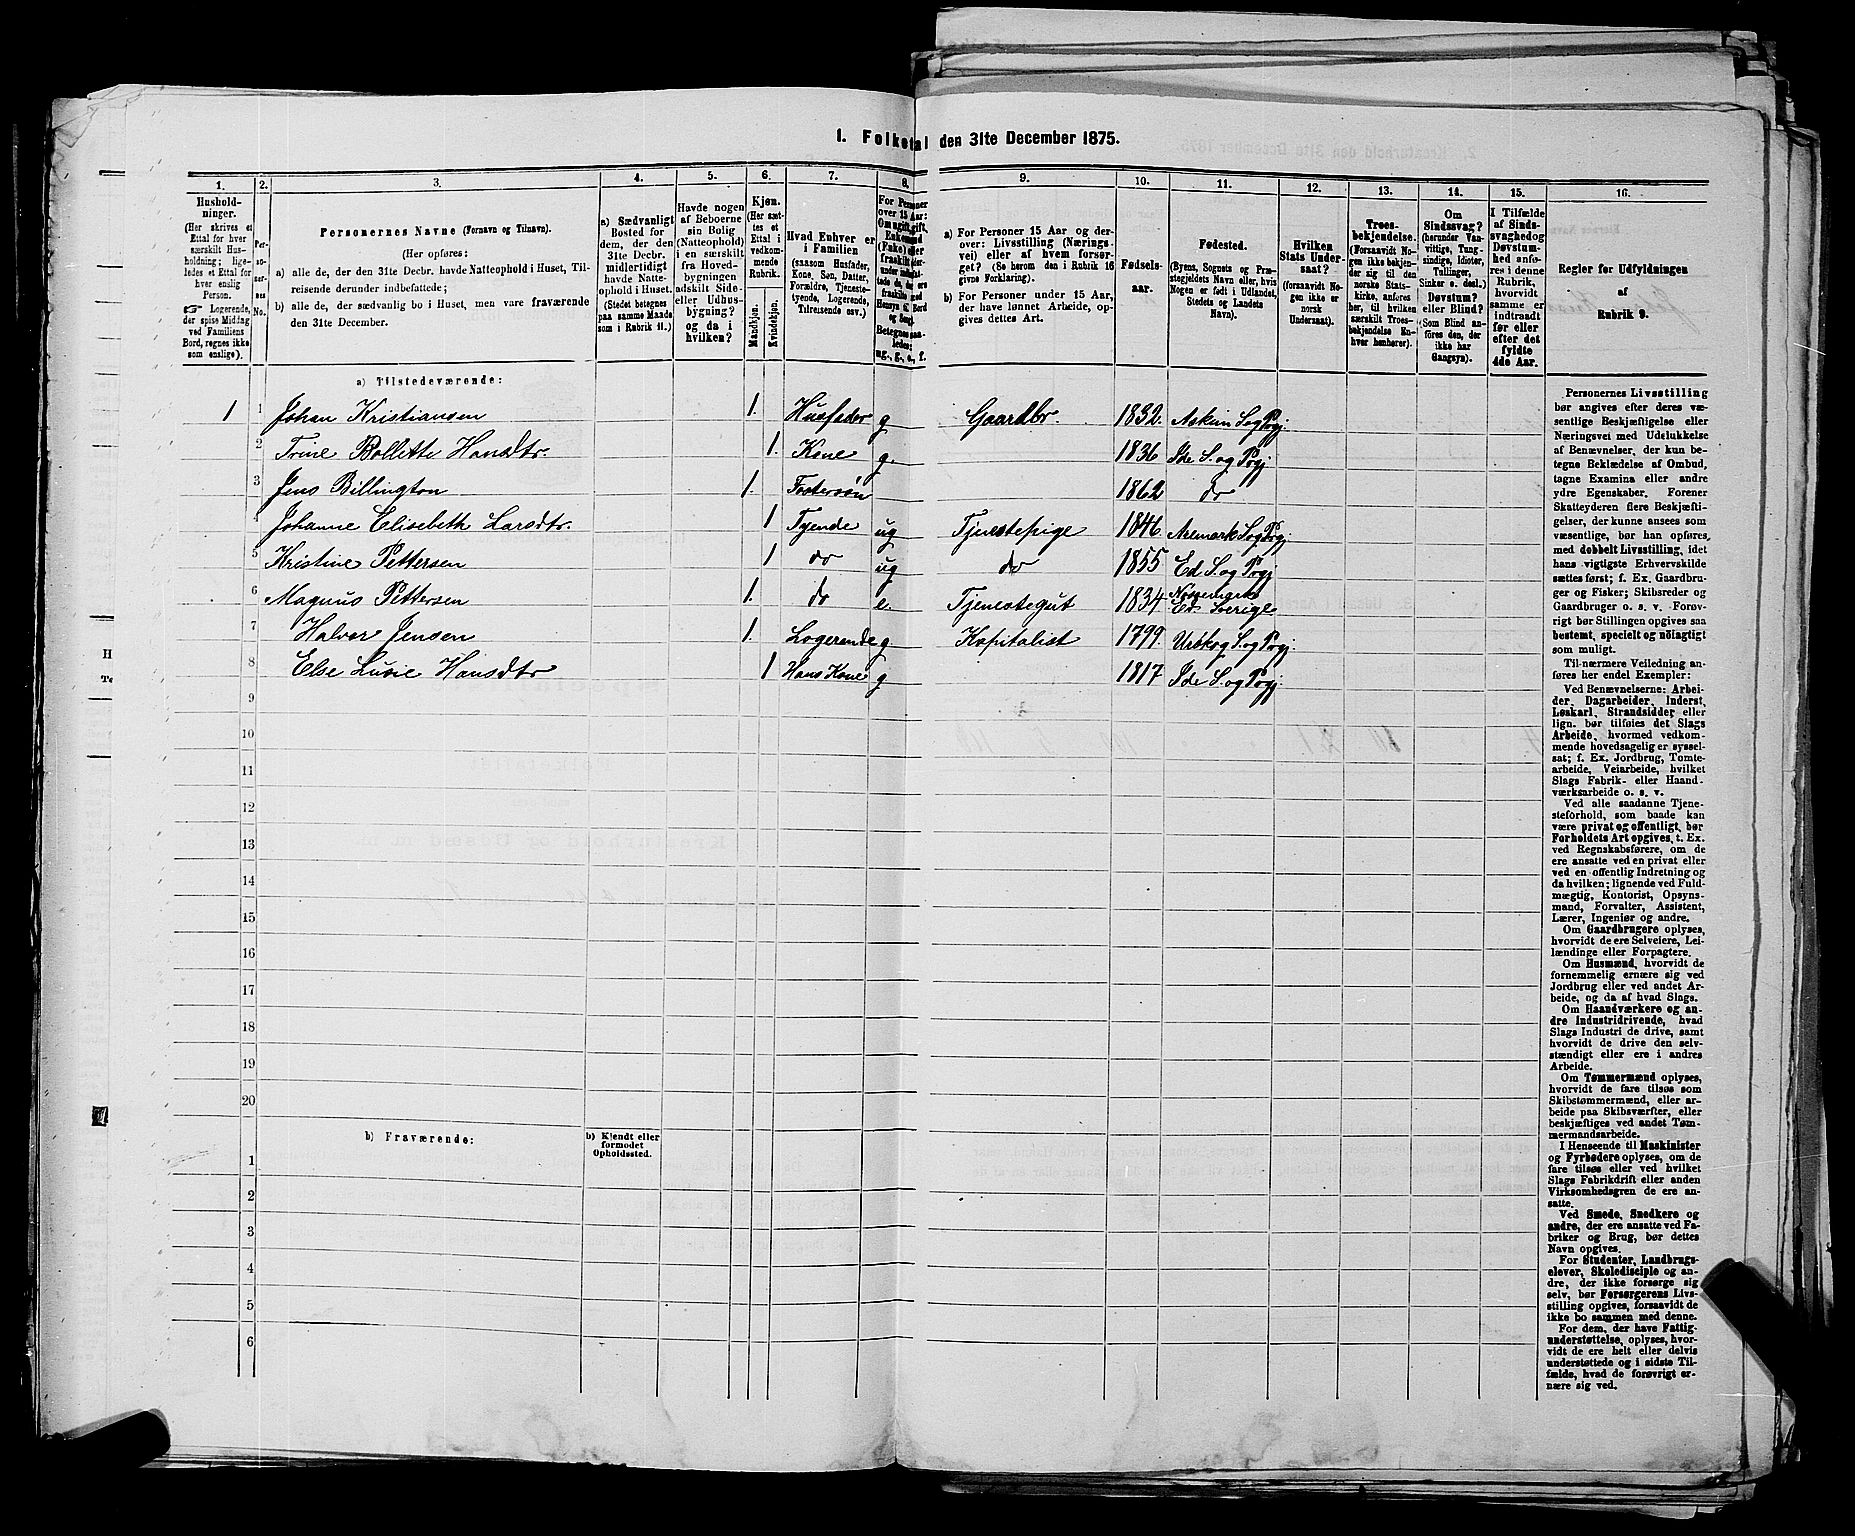 1. Folketal den 31te December 1875.
1. 2. 3. 4. 5. 6. 7. 8. 9. 10. 11. 12. 13. 14. 15. 16.
Husholdninger.
(Her skrives et
Ettal for hver
særskilt Hus-
holdning; lige-
ledes et Ettal for
hver enslig
Person.
Logerende,
der spise Middag
ved Familiens
Bord, regnes ikke
som enslige).
Personernes No.
Personernes Navne (Fornavn og Tilnavn).
(Her opføres:
a) alle de, der den 31te Decbr. havde Natteophold i Huset, Til-
reisende derunder indbefattede;
b) alle de, der sædvanlig bo i Huset, men vare fraværende
den 31te December.
a) Sædvanligt
Bosted for
dem, der den
31te Decbr.
midlertidigt
havde Natte-
ophold i Huset.
(Stedet betegnes
paa samme Maade
som i Rubrik 11.)
Havde nogen
af Beboerne
sin Bolig
(Natteophold)
i en særskilt
fra Hoved-
bygningen
adskilt Side-
eller Udhus-
bygning?
og da i
hvilken?
Kjøn.
(Her sæt-
tes et
Ettal i
vedkom-
mende
Rubrik.
Mandkjøn.
Kvindekjøn.
Hvad Enhver er
i Familien
(saasom Husfader,
Kone, Søn, Datter,
Forældre, Tjeneste-
tyende, Logerende,
Tilreisende osv.)
For Personer
over 15 Aar:
Betegnes saa-
ledes:
ug., g., e., f.
a) For Personer 15 Aar og der-
over: Livsstilling (Nærings-
vei) eller af hvem forsør-
get? (Se herom den i Rubrik 16
givne Forklaring).
b) For Personer under 15 Aar,
der have lønnet Arbeide, op-
gives dettes Art.
Fødsels-
aar.
Fødested.
(Byens, Sognets og Præ-
stegjeldets Navn eller, hvis
Nogen er født i Udlandet,
Stedets og Landets
Navn).
Hvilken
Stats Under-
saat?
(forsaavidt No-
gen ikke er
norsk
Undersaat).
Troes-
bekjendelse.
(Forsaavidt No-
gen ikke bekjen-
der sig til den
norske Stats-
kirke, anføres
her, til hvilken
særskilt Troes-
bekjendelse En-
hver henhører).
Om
Sindssvag?
(herunder Van-
vittige, Tung-
sindige, Idioter,
Tullinger,
Sinker o. desl.)
Døvstum?
eller Blind?
(Som Blind an-
føres den, der
ikke har
Gangsyn).
I Tilfælde
af Sinds-
svaghed og
Døvstum-
hed anfø-
res i denne
Rubrik,
hvorvidt
samme er
indtraadt
før eller
efter det
fyldte
4de Aar.
Regler for Udfyldningen
af
Rubrik 9.
a) Tilstedeværende:
1 1 Johan Kristiansen 1. Husfader g Gaardbr. 1832. Askim S. og Prgj.
2 Trine Bollette Hansdtr. 1. Kone g. 1836 Ide S. og Prgj
3 Jens Billington 1. Fostersøn 1862 do
4 Johanne Elisebeth Larsdtr. 1 Tyende ug Tjenestepige 1846 Aremark S. og Prgj.
5 Kristine Pettersen 1 do ug do 1855 Ed S. og Prgj
6 Magnus Pettersen 1. do e. Tjenestegut 1834 Ed Sverige
7 Halvor Jensen 1. Logerende g. Kapitalist 1799. Urskog S. og Prgj.
8 Else Lusie Hansdtr 1 Hans Kone g 1817 Ide S. og Prgj.
9
10
11
12
13
14
15
16
17
18
19
20
b) Fraværende:
b) Kjendt eller
formodet
Opholdssted.
1
2
3
4
5
6
Personernes Livsstilling
bør angives efter deres væ-
sentlige Beskjæftigelse eller
Næringsvei med Udelukkelse
af Benævnelser, der kun be-
tegne Beklædelse af Ombud,
tagne Examina eller andre
ydre Egenskaber. Forener
Skatteyderen flere Beskjæfti-
gelser, der kunne ansees som
væsentlige, bør han opføres
med dobbelt Livsstilling, idet
hans vigtigste Erhvervskilde
sættes først; f. Ex. Gaardbru-
ger og Fisker; Skibsreder og
Gaardbruger o. s. v. Forøv-
rigt bør Stillingen opgives saa
bestemt, specielt og nøiagtigt
som muligt.
Til nærmere Veiledning an-
føres her endel Exempler:
Ved Benævnelserne: Arbei-
der, Dagarbeider, Inderst,
Løskarl, Strandsidder eller
lign. bør tilføies det Slags
Arbeide, hvormed vedkom-
mende hovedsagelig er syssel-
sat; f. Ex. Jordbrug, Tomte-
arbeide, Veiarbeide, hvilket
Slags Fabrik- eller Haand-
værksarbeide o. s. v.
Ved alle saadanne Tjene-
steforhold, som baade kan
være privat og offentligt, bør
Forholdets Art opgives, t. Ex.
ved Regnskabsførere, om de
ere ansatte ved en privat eller
ved en offentlig Indretning og
da hvilken; lignende ved Fuld-
mægtig, Kontorist, Opsyns-
mand, Forvalter, Assistent,
Lærer, Ingeniør og andre.
Om Gaardbrugere oplyses,
hvorvidt de ere Selveiere, Lei-
lændinge eller Forpagtere.
Om Husmænd, hvorvidt de
fornemmelig ernære sig ved
Jordbrug eller ved andet Ar-
beide, og da af hvad Slags.
Om Haandværkere og an-
dre Industridrivende, hvad
Slags Industri de drive, samt
hvorvidt de drive den selv-
stændigt eller ere i andres
Arbeide.
Om Tømmermænd oplyses,
hvorvidt de fare tilsøs som
Skibstømmermænd, eller ar-
beide paa Skibsværfter, eller
beskjæftiges ved andet Tøm-
mermandsarbeide.
I Henseende til Maskinister
og Fyrbødere oplyses, om de
fare tilsøs eller ved hvilket
Slags Fabrikdrift eller anden
Virksomhedsgren de ere an-
satte.
Ved Smede, Snedkere og
andre, der ere ansatte ved Fa-
briker og Brug, bør dettes
Navn opgives.
For Studenter, Landbrugs-
elever, Skoledisciple og an-
dre, der ikke forsørge sig
selv, bør Forsørgerens Livs-
stilling opgives, forsaavidt de
ikke bo sammen med denne.
For dem, der have Fattig-
understøttelse, oplyses, hvor-
vidt de ere helt eller delvis
understøttede og i sidste Til-
fælde, hvad de forøvrigt er-
nære sig ved.